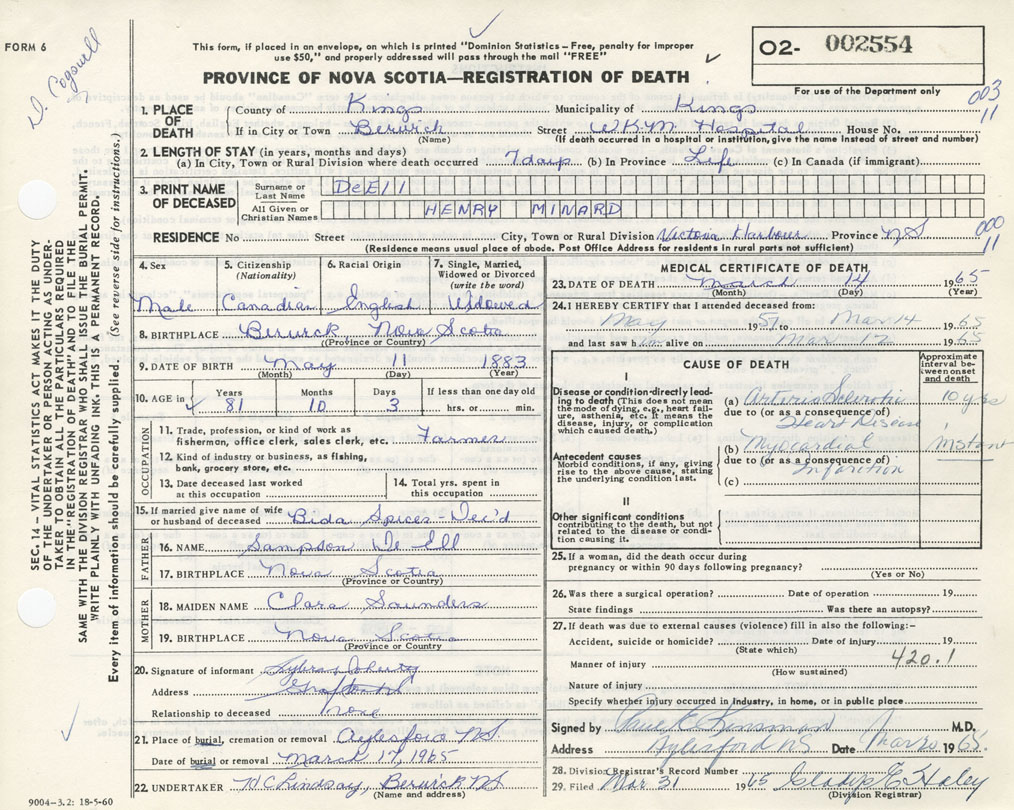 FORM 6
D. Cogswell
This form, if placed in an envelope, on which is printed "Dominion Statistics – Free, penalty for improper
use $50," and properly addressed will pass through the mail "FREE"
PROVINCE OF NOVA SCOTIA—REGISTRATION OF DEATH
O2- 002554
For use of the Department only
003
11
1. PLACE OF DEATH { County of Kings Municipality of Kings
If in City or Town Berwick Street W.K.M. Hospital House No.
(Name) (If death occurred in a hospital or institution, give the name instead of street and number)
2. LENGTH OF STAY (in years, months and days)
(a) In City, Town or Rural Division where death occurred 7 days (b) In Province Life (c) In Canada (if immigrant)
3. PRINT NAME OF DECEASED
Surname or Last Name DeEll
All Given or Christian Names HENRY MINARD
RESIDENCE No Street City, Town or Rural Division Victoria Harbour Province N.S. 000
11
(Residence means usual place of abode. Post Office Address for residents in rural parts not sufficient)
4. Sex Male
5. Citizenship (Nationality) Canadian
6. Racial Origin English
7. Single, Married, Widowed or Divorced (write the word) Widowed
8. BIRTHPLACE Berwick Nova Scotia
(Province or Country)
9. DATE OF BIRTH May 11 1883
(Month) (Day) (Year)
10. AGE in Years 81 Months 10 Days 3 If less than one day old hrs. or min.
OCCUPATION
11. Trade, profession, or kind of work as
fisherman, office clerk, sales clerk, etc. Farmer
12. Kind of industry or business, as fishing,
bank, grocery store, etc.
13. Date deceased last worked
at this occupation
14. Total yrs. spent in
this occupation
15. If married give name of wife
or husband of deceased Bida Spicer - Dec'd
FATHER
16. NAME Sampson De Ell
17. BIRTHPLACE Nova Scotia
(Province or Country)
MOTHER
18. MAIDEN NAME Clara Saunders
19. BIRTHPLACE Nova Scotia
(Province or Country)
20. Signature of informant Doherty
Address Grafton
Relationship to deceased none
21. Place of burial, cremation or removal Aylesford N.S.
Date of burial or removal March 17, 1965
22. UNDERTAKER W C Lindsay, Berwick N.S
(Name and address)
MEDICAL CERTIFICATE OF DEATH
23. DATE OF DEATH March 14 1965
(Month) (Day) (Year)
24. I HEREBY CERTIFY that I attended deceased from:
May 1957 to Mar 14 1965
and last saw him alive on Mar 12 1965
CAUSE OF DEATH
Approximate interval between onset and death
I
Disease or condition directly leading to death (This does not mean the mode of dying, e.g., heart failure, asthenia, etc. It means the disease, injury, or complication which caused death.)
(a) Arterio Sclerotic 10 yrs
due to (or as a consequence of)
Heart Disease
Antecedent causes
Morbid conditions, if any, giving rise to the above cause, stating the underlying condition last.
(b) Myocardial instant
due to (or as a consequence of)
Infarction
(c)
II
Other significant conditions
contributing to the death, but not related to the disease or condition causing it.
25. If a woman, did the death occur during
pregnancy or within 90 days following pregnancy?
(Yes or No)
26. Was there a surgical operation? Date of operation 19
State findings Was there an autopsy?
27. If death was due to external causes (violence) fill in also the following:-
Accident, suicide or homicide? Date of injury 19
(State which)
Manner of injury 420.1
(How sustained)
Nature of injury
Specify whether injury occurred in Industry, in home, or in public place
Signed by Paul E. Kinsman M.D.
Address Aylesford NS Date Mar 20 1965.
28. Division Registrar's Record Number
29. Filed Mar 31 1965 Gladys E. Haley
(Division Registrar)
SEC. 14 – VITAL STATISTICS ACT MAKES IT THE DUTY
OF THE UNDERTAKER OR PERSON ACTING AS UNDER-
TAKER TO OBTAIN ALL THE PARTICULARS REQUIRED
IN THE "REGISTRATION OF DEATH" AND TO FILE THE
SAME WITH THE DIVISION REGISTRAR WHO SHALL ISSUE THE BURIAL PERMIT.
WRITE PLAINLY WITH UNFADING INK. THIS IS A PERMANENT RECORD.
Every item of information should be carefully supplied. (See reverse side for instructions.)
9004–3.2: 18-5-60